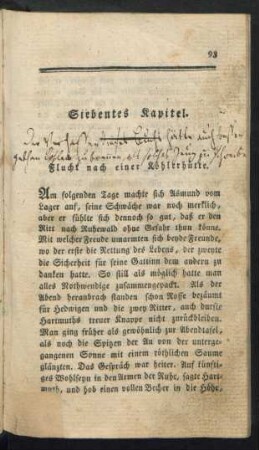 93
Siebentes Kapitel.
Der Verfasser dieses hätte auch besser
gethan Kohlen zu brennen, als solches Zeug zu schreiben
Flucht nach einer Köhlerhütte.
Am folgenden Tage machte sich Asmund vom
Lager auf, seine Schwäche war noch merklich,
aber er fühlte sich dennoch so gut, daß er den
Ritt nach Ruhewald ohne Gefahr thun könne.
Mit welcher Freude umarmten sich beyde Freunde,
wo der erste die Rettung des Lebens, der zweyte
die Sicherheit für seine Gattinn dem andern zu
danken hatte. So still als möglich hatte man
alles Nothwendige zusammengepackt. Als der
Abend heranbrach stunden schon Rosse bezäumt
für Hedwigen und die zwey Ritter, auch durfte
Hartmuths treuer Knappe nicht zurückbleiben.
Man ging früher als gewöhnlich zur Abendtafel,
als noch die Spitzen der Au von der unterge-
gangenen Sonne mit einem röthlichen Saume
glänzten. Das Gespräch war heiter. Auf künfti-
ges Wohlseyn in den Armen der Ruhe, sagte Hart-
muth, und hob einen vollen Becher in die Höhe,